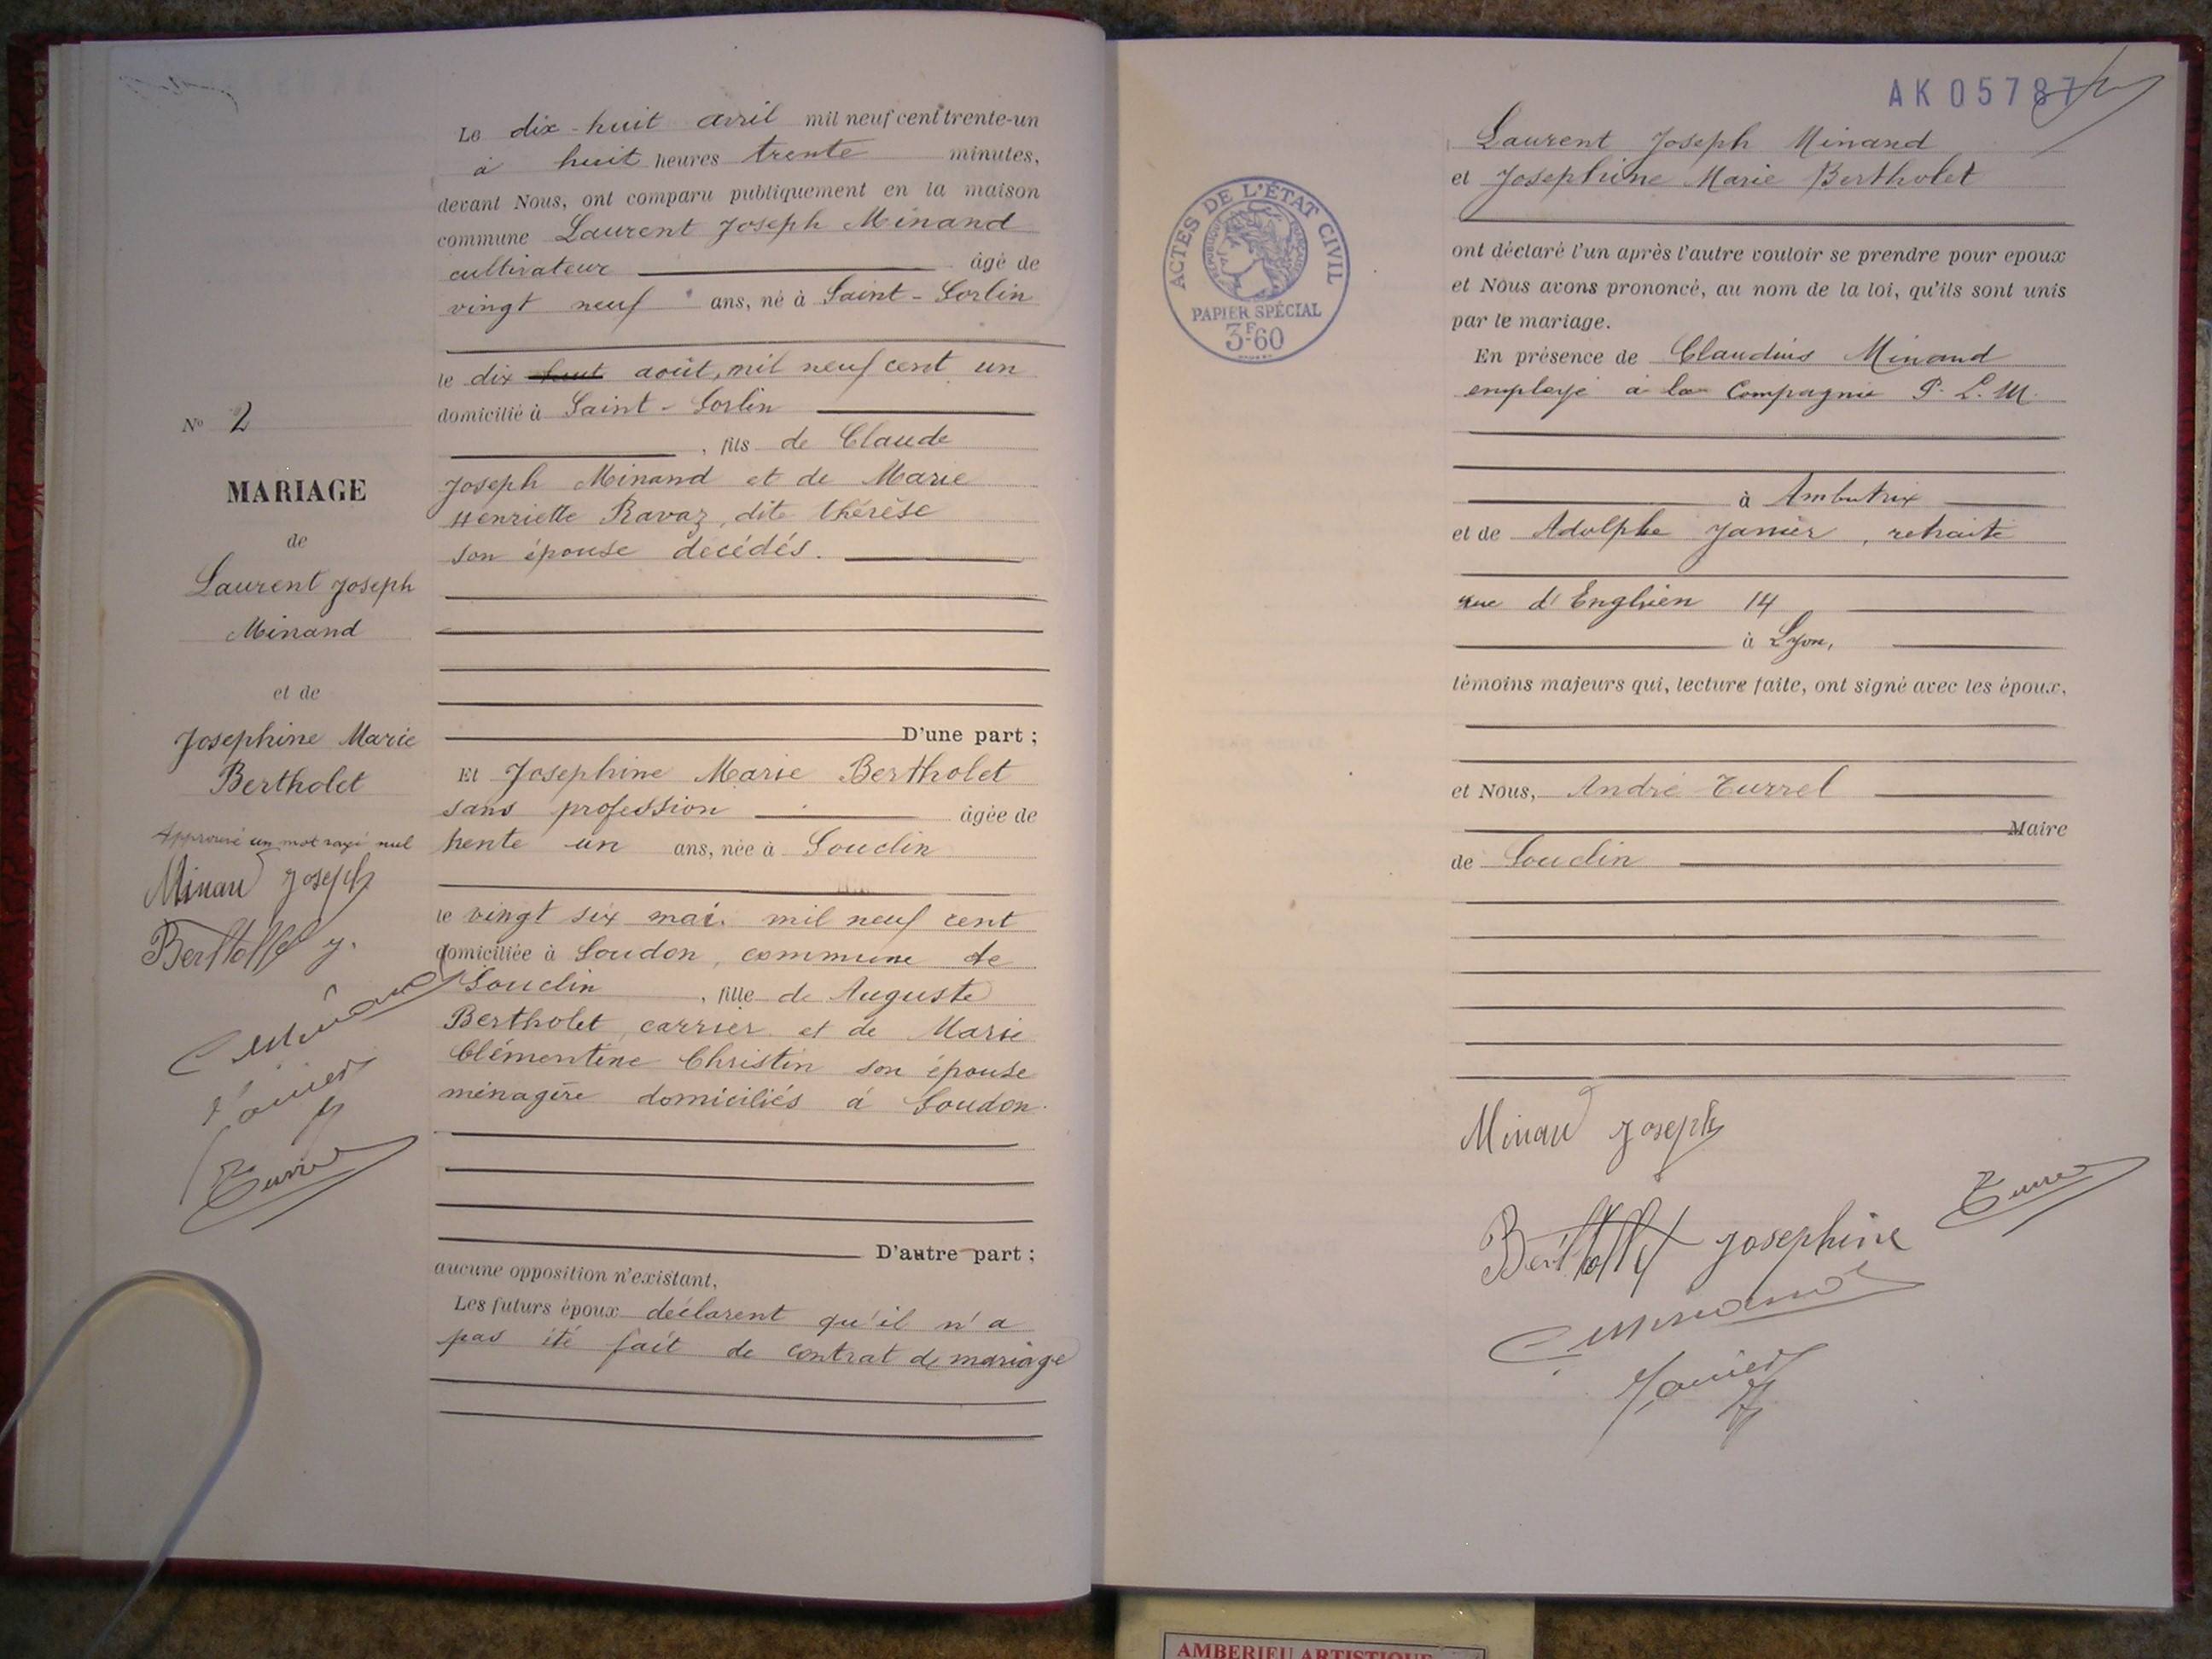 N° 2
MARIAGE
de
Laurent Joseph
Minand
et de
Josephine Marie
Bertholet
Approuvé un mot rayé nul
Minand Joseph
Berthollet J.
Janier
Turrel
Le dix-huit avril mil neuf cent trente-un
à huit heures trente minutes,
devant Nous, ont comparu publiquement en la maison
commune Laurent Joseph Minand
cultivateur âgé de
vingt neuf ans, né à Saint-Sorlin
le dix huit août, mil neuf cent un
domicilié à Saint-Sorlin
, fils de Claude
Joseph Minand et de Marie
Henriette Ravaz, dite thérèse
son épouse décédés.
D'une part ;
Et Josephine Marie Bertholet
sans profession âgée de
trente un ans, née à Souclin
le vingt six mai mil neuf cent
domiciliée à Soudon, commune de
Souclin , fille de Auguste
Bertholet, carrier et de Marie
Clémentine Christin son épouse
ménagère domiciliés à Soudon.
D'autre part ;
aucune opposition n'existant,
Les futurs époux déclarent qu'il n'a
pas été fait de contrat de mariage
AK 05787
ACTES DE L'ÉTAT CIVIL
RÉPUBLIQUE FRANÇAISE
PAPIER SPÉCIAL
3F60
Laurent Joseph Minand
et Josephine Marie Bertholet
ont déclaré l'un après l'autre vouloir se prendre pour epoux
et Nous avons prononcé, au nom de la loi, qu'ils sont unis
par le mariage.
En présence de Claudius Minand
employé à la Compagnie P. L. M.
à Ambutrix
et de Adolphe Janier, retraité
rue d'Enghien 14
à Lyon,
témoins majeurs qui, lecture faite, ont signé avec les époux.
et Nous, André Turrel
Maire
de Souclin
Minand Joseph
Turrel
Berthollet Josephine
Janier
AMBERIEU ARTISTIQUE